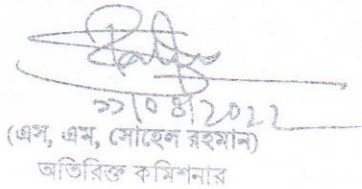 ১১/০৪/2022
(এস, এম, সোহেল রহমান)
অতিরিক্ত কমিশনার